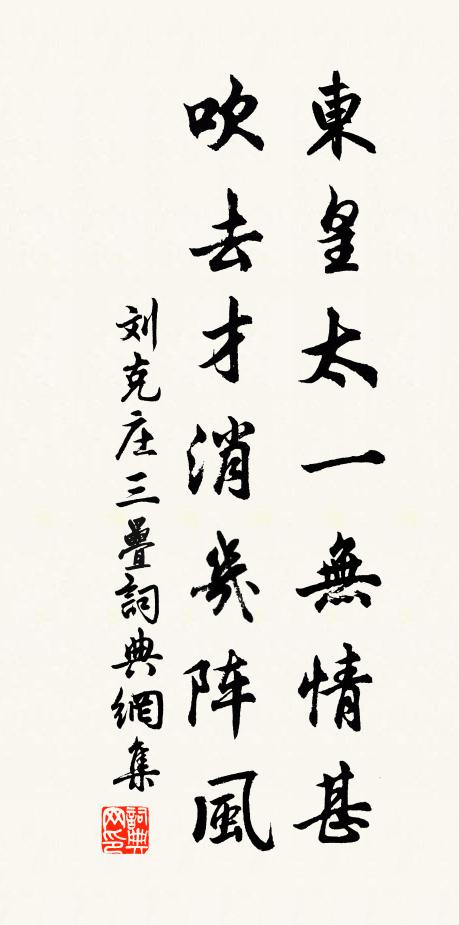 東皇太一無情甚
吹去才消幾阵風
刘克庄三疊詞典網集
詞典网印